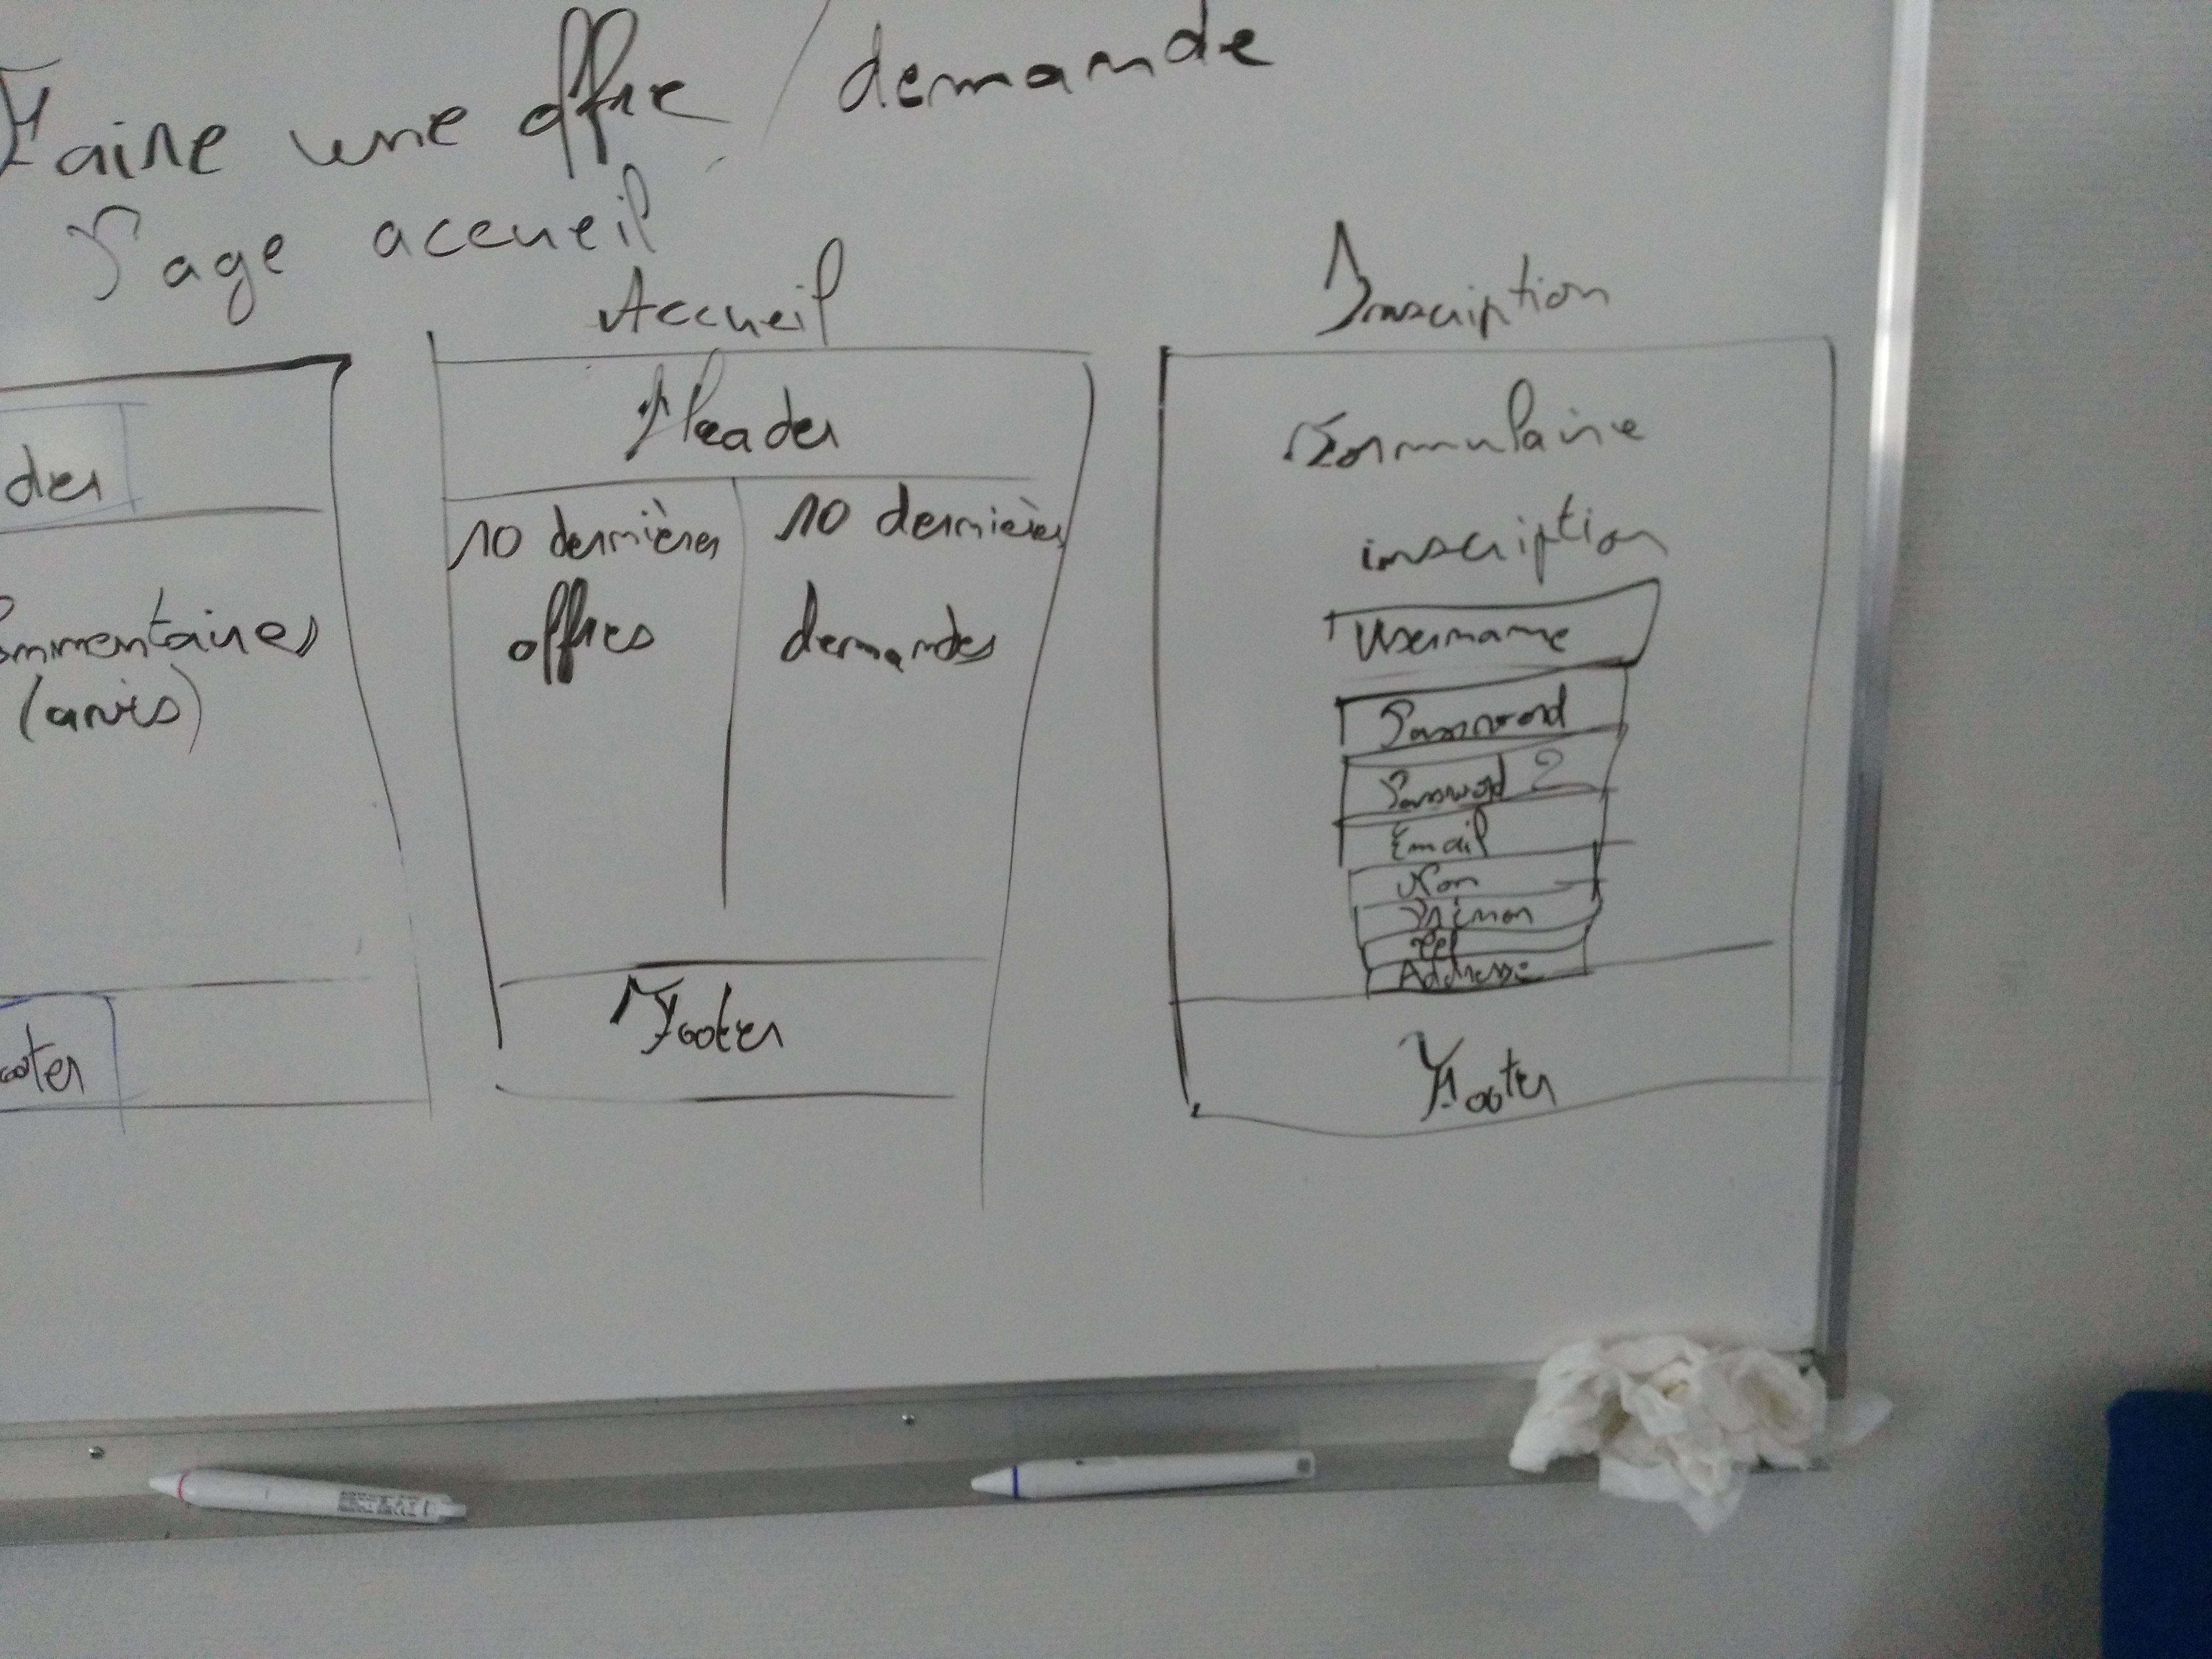 Faire une offre / demande
Page accueil
der
ommentaires
(avis)
ooter
Accueil
Header
10 dernières
offres
10 dernières
demandes
Footer
Inscription
Formulaire
inscription
Username
Password
Password 2
Email
Nom
Prénom
Tel
Addresse
Footer